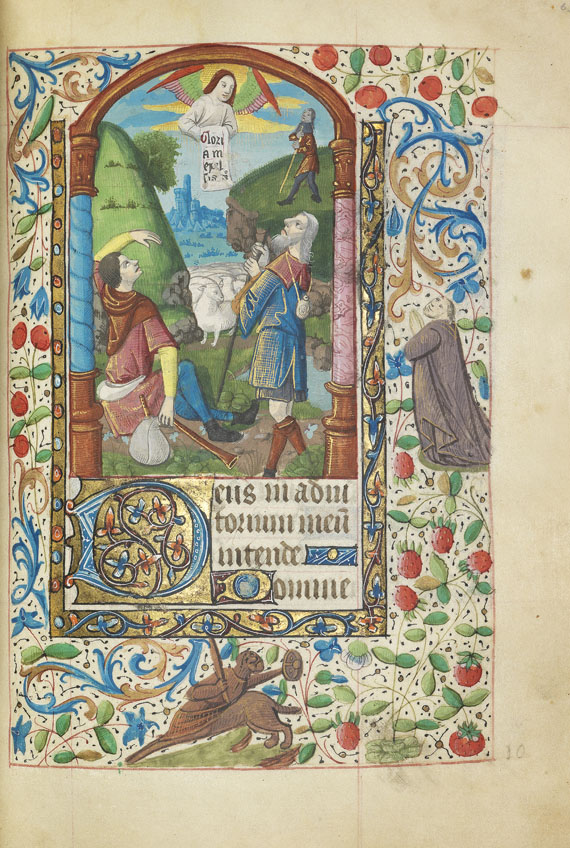 Glori
a m
excel
sis
Deus in adiu
torium meū
intende
Domine
10